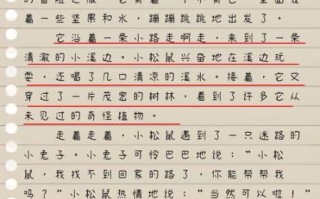 着一些坚果和水，蹦蹦跳跳地出发了。
它沿着一条小路走啊走，来到了一条
清澈的小溪边。小松鼠兴奋地在溪边玩
耍，还喝了几口清凉的溪水。接着，它又
穿过了一片茂密的树林，看到了许多它从
未见过的奇怪植物。
走着走着，小松鼠遇到了一只迷路的
小兔子。小兔子可怜巴巴地说：“小松
鼠，我找不到回家的路了，你能帮帮我
吗？”小松鼠热情地说：“当然可以啦！”